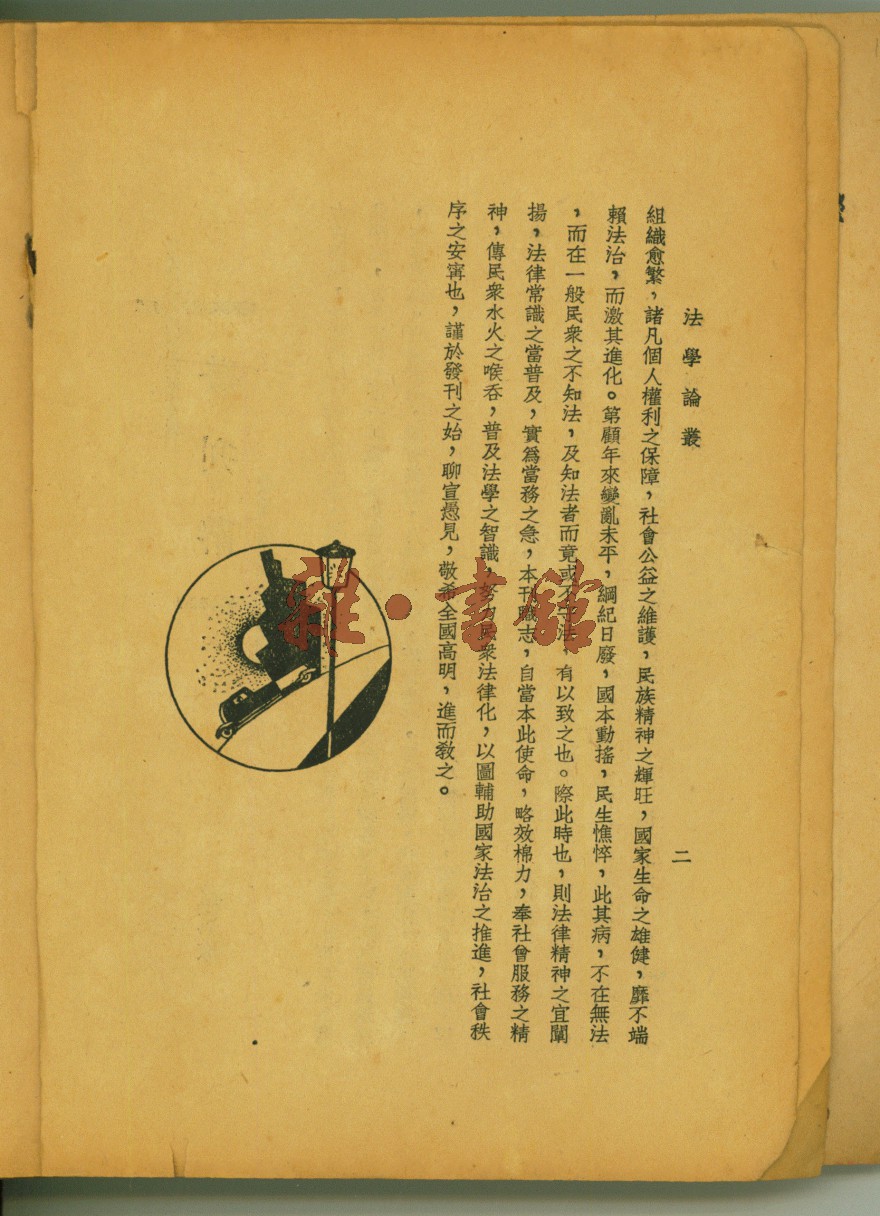 法學論叢
二
組織愈繁，諸凡個人權利之保障，社會公益之維護，民族精神之輝旺，國家生命之雄健，靡不端
賴法治，而激其進化。第顧年來變亂未平，綱紀日廢，國本動搖，民生憔悴，此其病，不在無法
，而在一般民衆之不知法，及知法者而竟或不守法，有以致之也。際此時也，則法律精神之宜闡
揚，法律常識之當普及，實爲當務之急，本刊職志，自當本此使命，略效棉力，奉社會服務之精
神，傳民衆水火之喉吞，普及法學之智識，努力民衆法律化，以圖輔助國家法治之推進，社會秩
序之安寗也，謹於發刊之始，聊宣愚見，敬希全國高明，進而敎之。
雜·書館